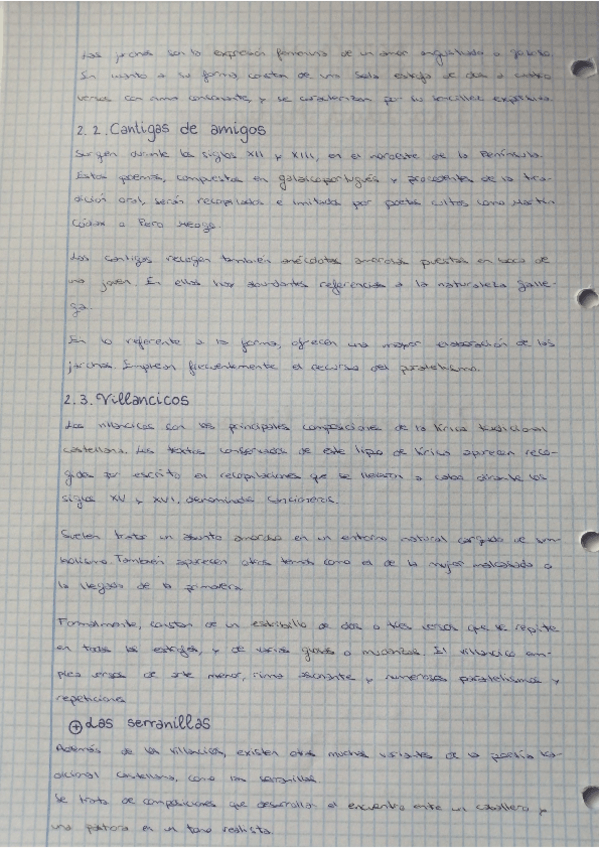 Las jarchas son la expresión femenina de un amor angustiado a
En cuanto a su forma, constan de una sola estrofa de dos a cuatro
versos con rima consonante, y se caracterizan por su sencillez expresiva.
2.2. Cantigas de amigos
Surgen durante los siglos XII y XIII, en el noroeste de la Península.
Estos poemas, compuestos en galaicoportugués y procedentes de la tra-
dición oral, serán recopilados e imitados por poetas cultos como Martín
Códax o Pero Meogo.
Las cantigas recogen también anécdotas amorosas puestas en boca de
una joven. En ellas hay abundantes referencias a la naturaleza galle-
ga.
En lo referente a la forma, ofrecen una mayor elaboración de las
jarchas. Emplean frecuentemente el recurso del paralelismo.
2.3. Villancicos
Los villancicos son las principales composiciones de la lírica tradicional
castellana. Los textos conservados de este tipo de lírica aparecen reco-
gidos por escrito en recopilaciones que se llevaron a cabo durante los
siglos XV y XVI, denominados cancioneros.
Suelen tratar un asunto amoroso en un entorno natural cargado de sim-
bolismo. También aparecen otros temas como el de la mujer malcasada o
la llegada de la primavera
Formalmente, constan de un estribillo de dos o tres versos que se repite
en todas las estrofas, y de varias glosas o mudanzas. El villancico em-
plea versos de arte menor, rima asonante y numerosos paralelismos y
repeticiones
⊕ Las serranillas
Además de los villancicos, existen otras muchas variantes de la poesía tra-
dicional castellana, como las serranillas.
Se trata de composiciones que desarrollan el encuentro entre un caballero y
una pastora en un tono realista.